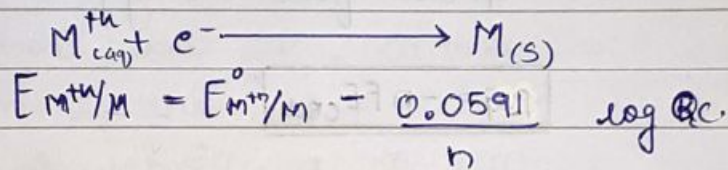 M⁺ⁿ(aq) + e⁻ ⟶ M(s)
E M⁺ⁿ/M = E° M⁺ⁿ/M - 0.0591/n log Qc.